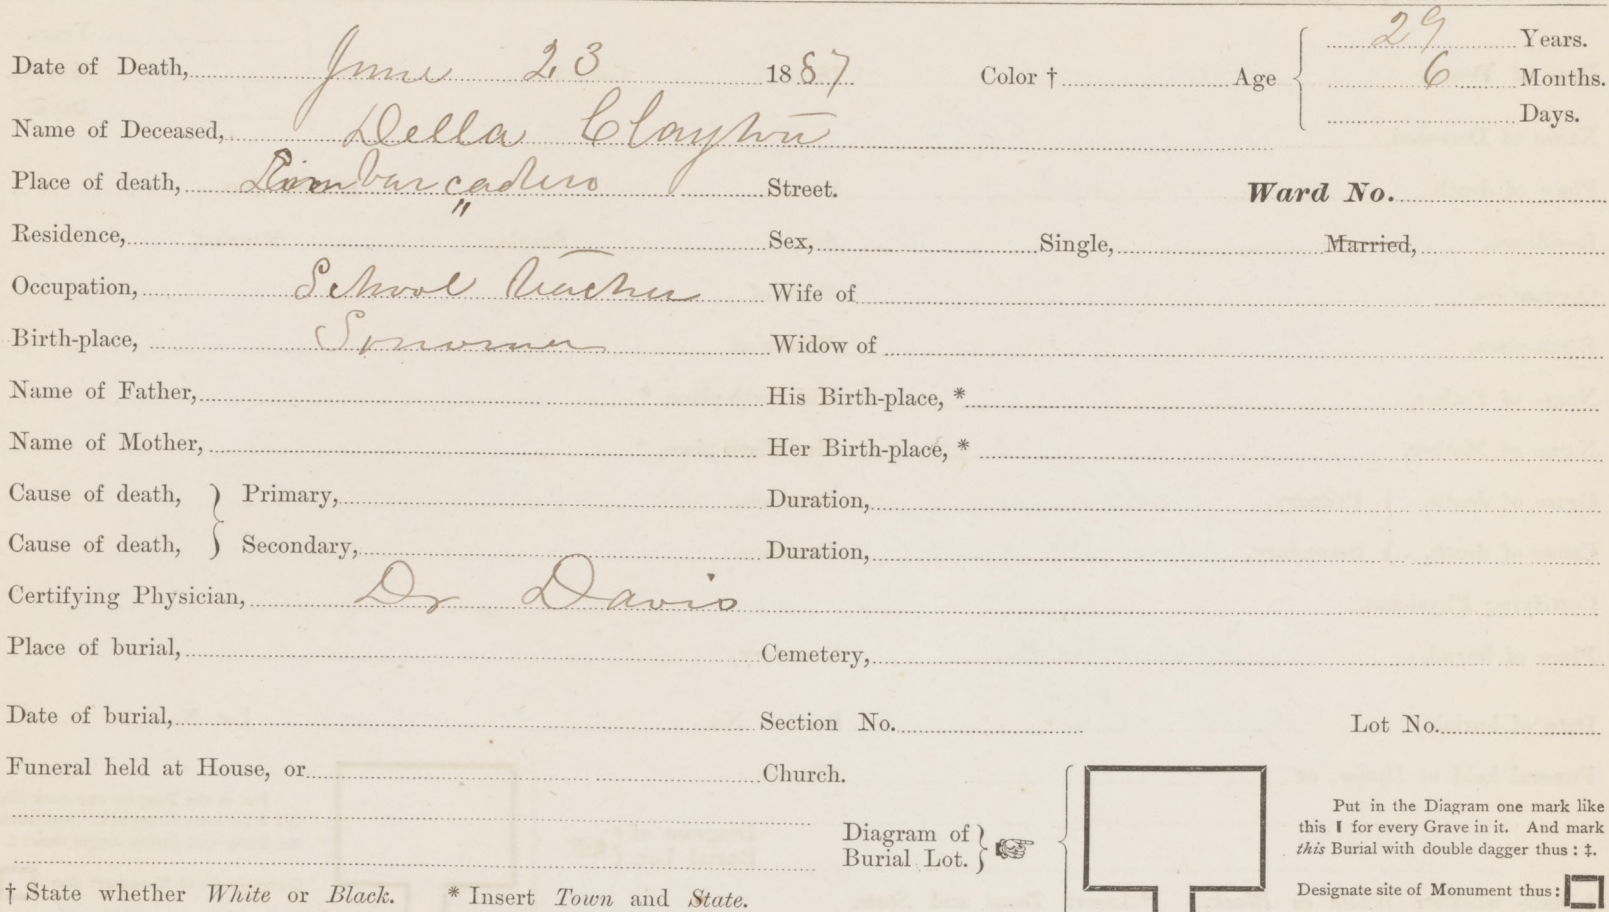 Date of Death, June 23 1887 Color † Age 29 Years.
6 Months.
Days.
Name of Deceased, Della Clayton
Place of death, Street. Ward No.
"
Residence, Sex, Single, Married,
Occupation, School teacher Wife of
Birth-place, Sonoma Widow of
Name of Father, His Birth-place, *
Name of Mother, Her Birth-place, *
Cause of death, } Primary, Duration,
Cause of death, } Secondary, Duration,
Certifying Physician, Dr Davis
Place of burial, Cemetery,
Date of burial, Section No. Lot No.
Funeral held at House, or Church.
Diagram of Burial Lot. }
Put in the Diagram one mark like
this ❙ for every Grave in it. And mark
this Burial with double dagger thus : ‡.
Designate site of Monument thus :
† State whether White or Black. * Insert Town and State.